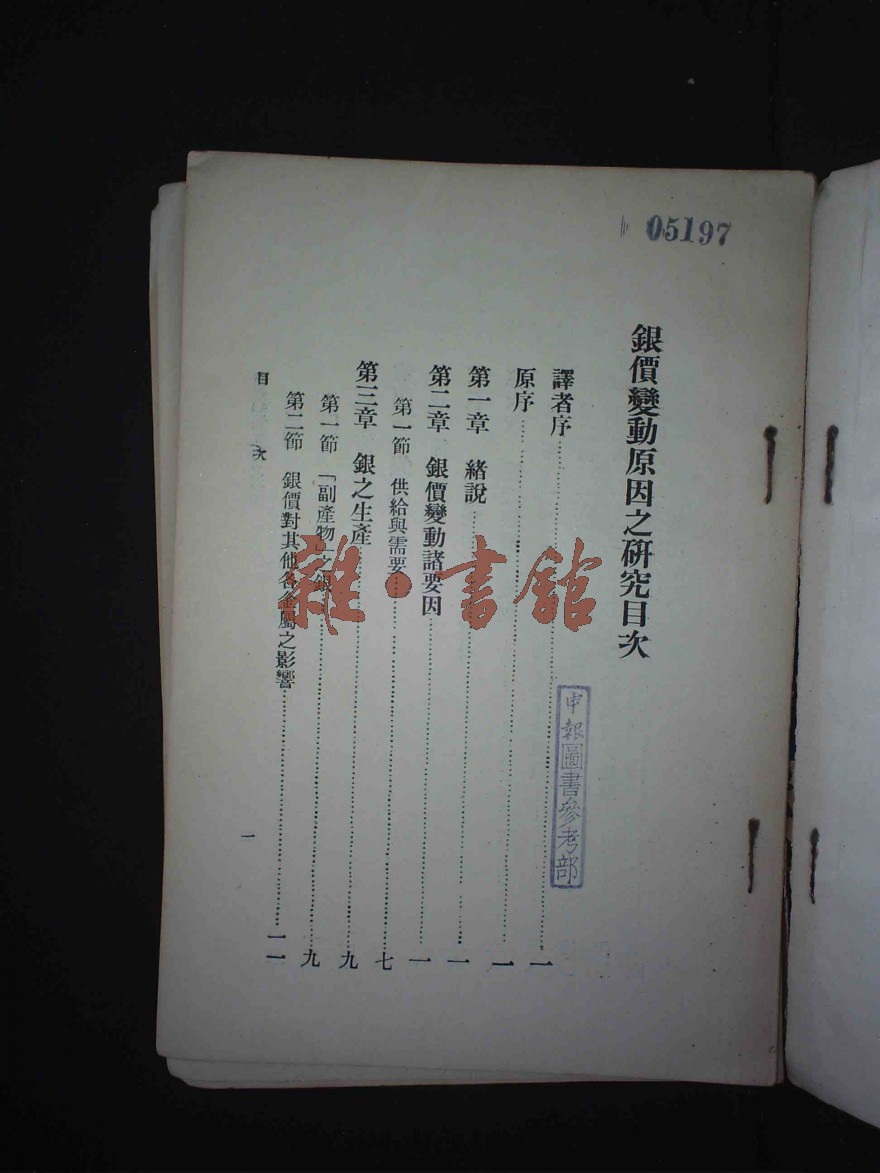 05197
銀價變動原因之硏究目次
譯者序……一
原序……一
第一章 緒說……一
第二章 銀價變動諸要因……一
第一節 供給與需要……七
第三章 銀之生產……九
第一節 「副產物」之銀……九
第二節 銀價對其他各金屬之影響……一一
目次
一
申報圖書參考部
雜·書館